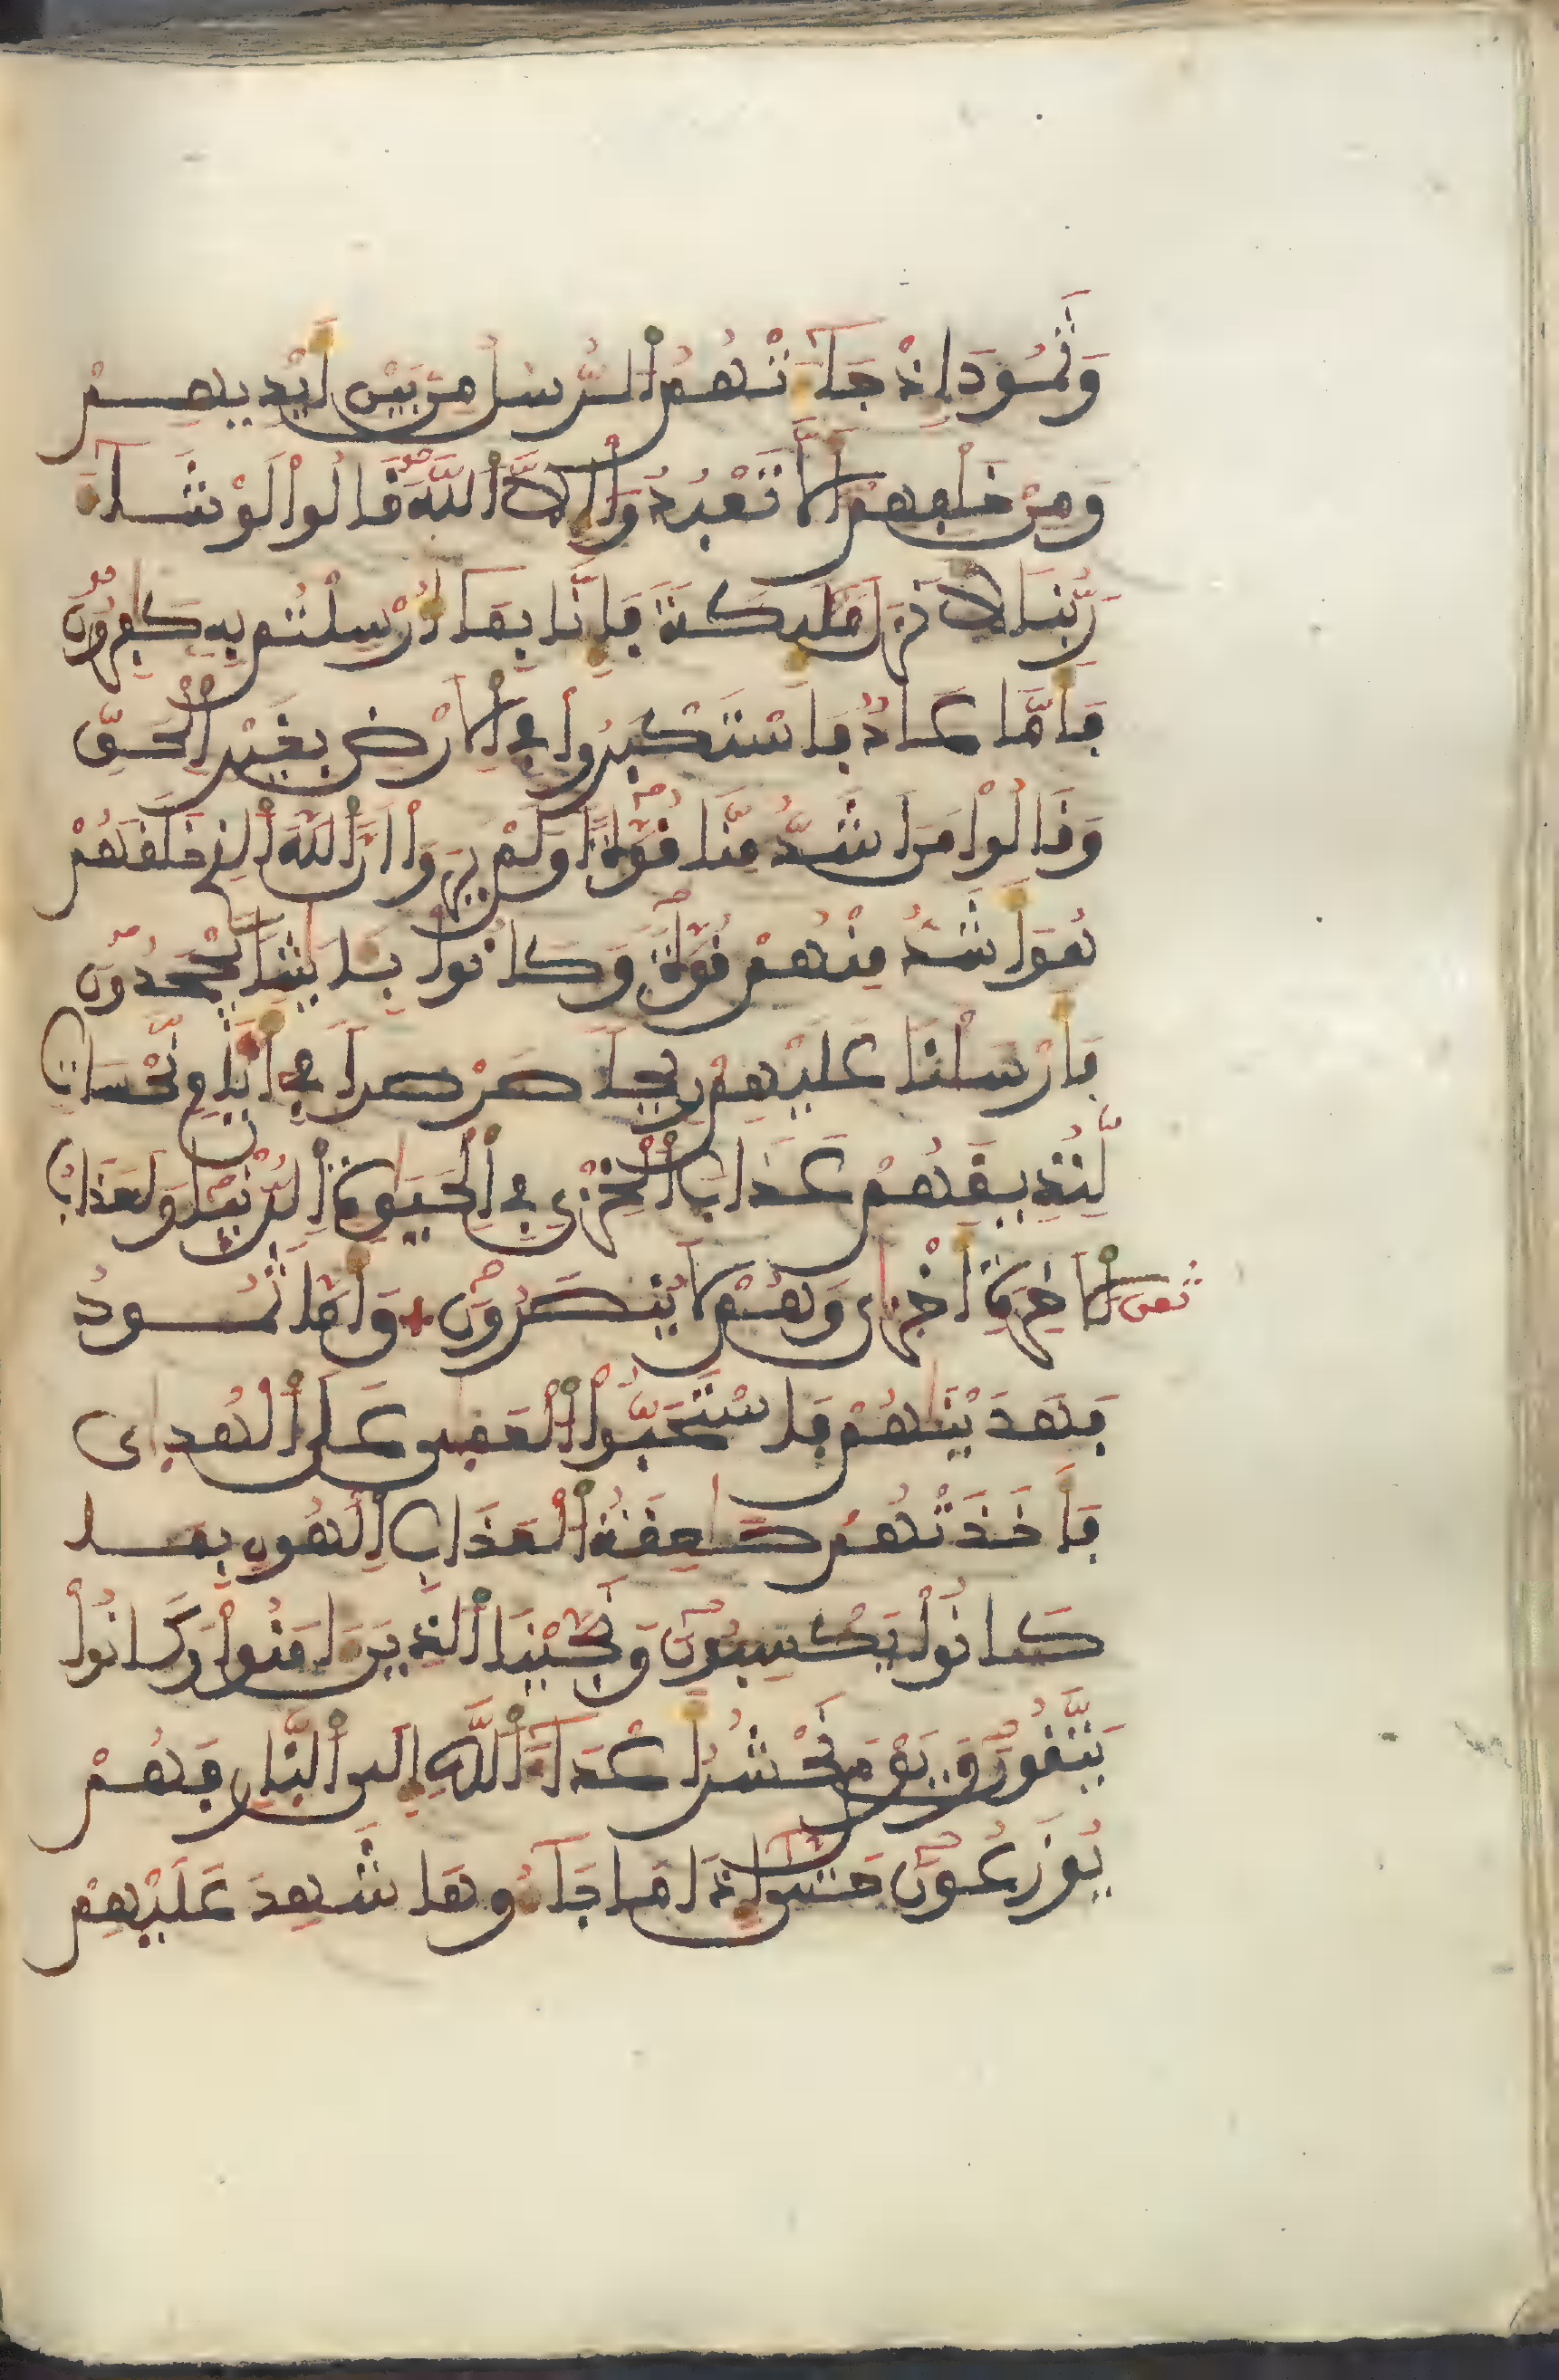 وَثَمُودَ إِذْ جَآءَتْهُمُ الرُّسُلُ مِنۢ بَيْنِ أَيْدِيهِمْ
وَمِنْ خَلْفِهِمْ أَلَّا تَعْبُدُوٓا إِلَّا اللَّهَ قَالُوا لَوْ شَآءَ
رَبُّنَا لَأَنزَلَ مَلَٰٓئِكَةً فَإِنَّا بِمَآ أُرْسِلْتُم بِهِ كَٰفِرُونَ
فَأَمَّا عَادٌ فَاسْتَكْبَرُوا فِي الْأَرْضِ بِغَيْرِ الْحَقِّ
وَقَالُوا مَنْ أَشَدُّ مِنَّا قُوَّةً أَوَلَمْ يَرَوْا أَنَّ اللَّهَ الَّذِي خَلَقَهُمْ
هُوَ أَشَدُّ مِنْهُمْ قُوَّةً وَكَانُوا بِـَٔايَٰتِنَا يَجْحَدُونَ
فَأَرْسَلْنَا عَلَيْهِمْ رِيحًا صَرْصَرًا فِي أَيَّامٍ نَّحْسَاتٍ
لِّنُذِيقَهُمْ عَذَابَ الْخِزْيِ فِي الْحَيَوٰةِ الدُّنْيَا وَلَعَذَابُ
ثمن الْأَخِرَةِ أَخْزَىٰ وَهُمْ لَا يُنصَرُونَ وَأَمَّا ثَمُودُ
فَهَدَيْنَٰهُمْ فَاسْتَحَبُّوا الْعَمَىٰ عَلَى الْهُدَىٰ
فَأَخَذَتْهُمْ صَٰعِقَةُ الْعَذَابِ الْهُونِ بِمَا
كَانُوا يَكْسِبُونَ وَنَجَّيْنَا الَّذِينَ ءَامَنُوا وَكَانُوا
يَتَّقُونَ وَيَوْمَ نَحْشُرُ أَعْدَآءَ اللَّهِ إِلَى النَّارِ فَهُمْ
يُوزَعُونَ حَتَّىٰٓ إِذَا مَا جَآءُوهَا شَهِدَ عَلَيْهِمْ